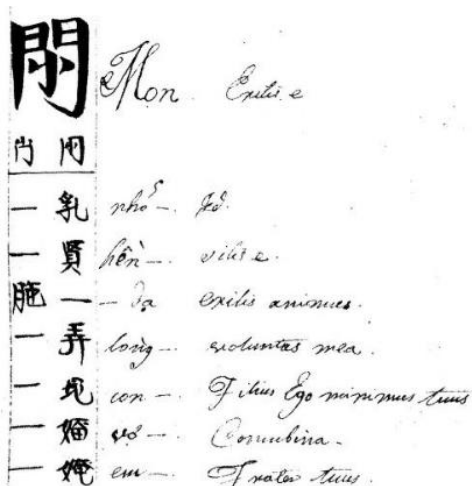 Mon. Exilis e
— 乳 nhỏ —. Id.
— 賢 hèn —. vilis e.
胣 — — dạ exilis animus.
— 弄 lòng —. voluntas mea.
— con —. Filius Ego minimus tuus
— vợ —. Concubina.
— em —. Frater tuus.